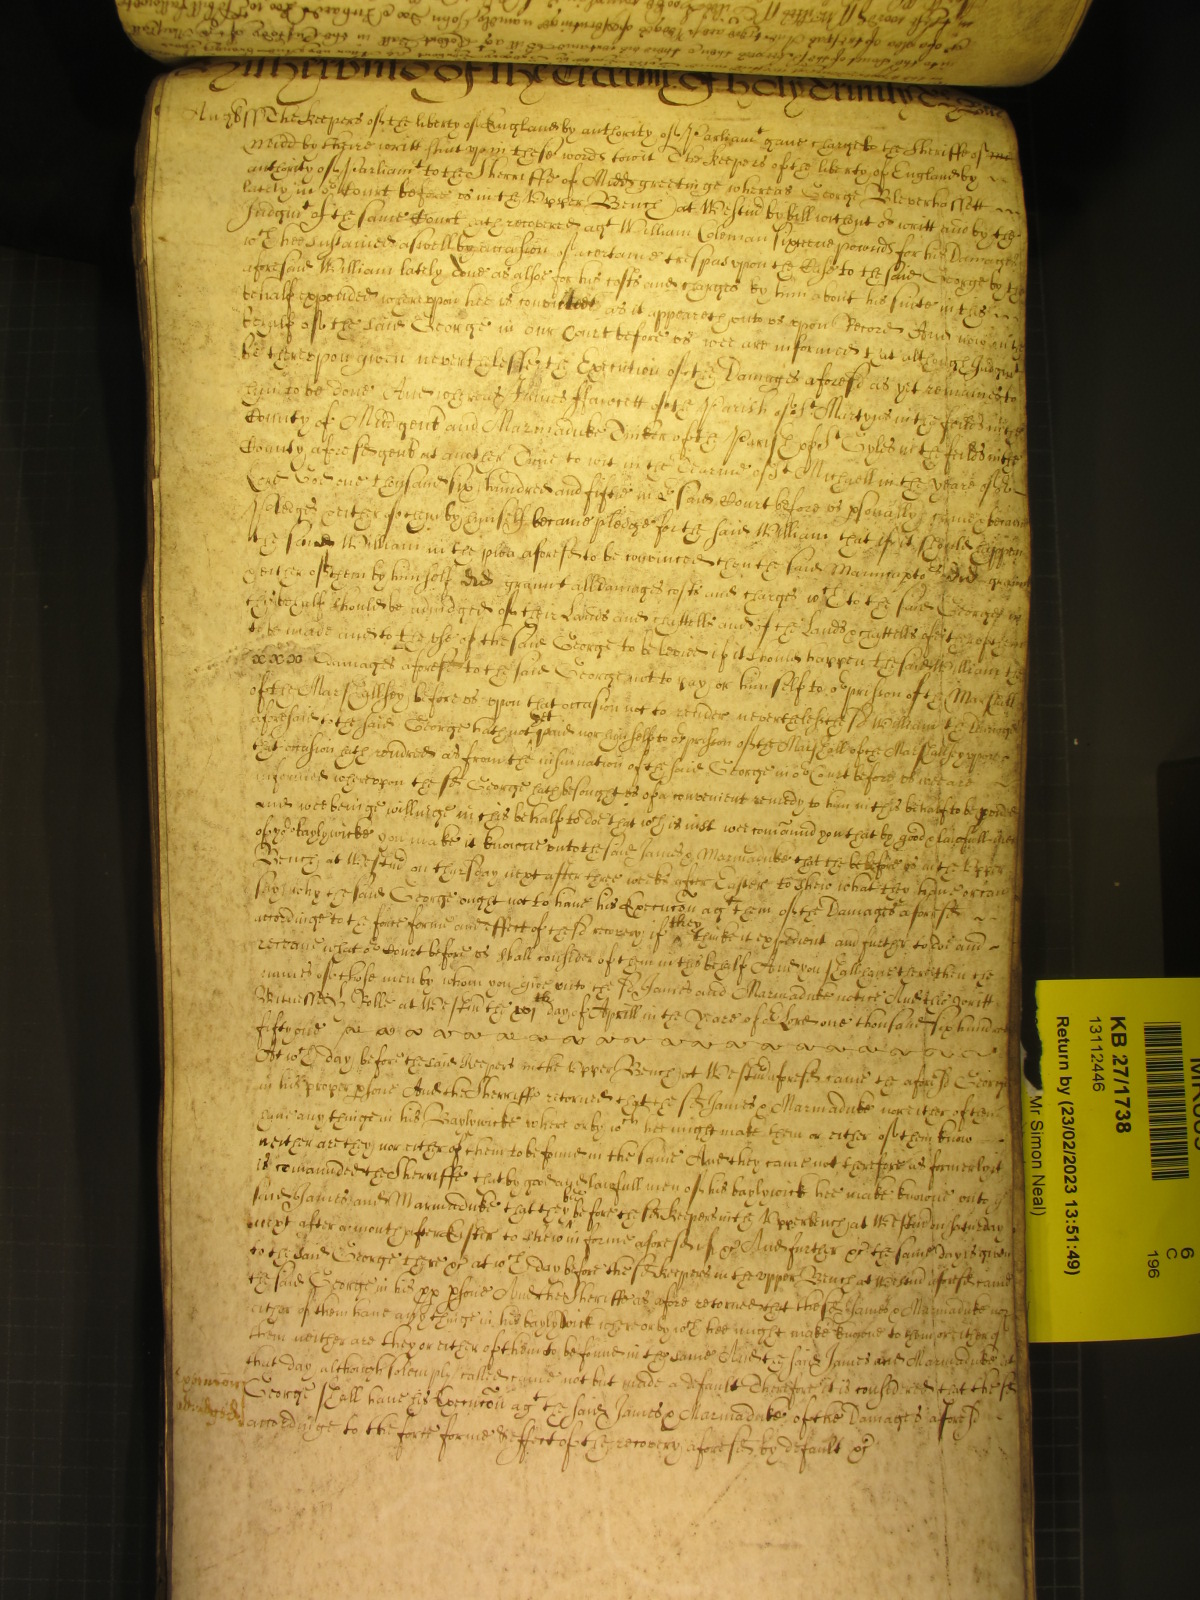 of the Tearme of holy Trinity
The Keepers of the liberty of England by authority of Parliamt gave charge to the Sheriffe of
Midd by theire writt shut upp in these words towit The keepers of the liberty of England by
authority of Parliamt to the Sherriffe of Midds greetinge whereas George Bleverhassett
lately in or Court before us in the Upper Bench at Westm by bill without or writt and by the
Judgmt of the same Court hath recovered agt William Coleman sixteene pounds for his Damages
wch hee sustained aswell by occasion of a certaine trespas upon the Case to the said George by the
aforesaid William lately done as alsoe for his costs and charges by him about his suite in this
behalf expended whereuppon hee is convicted as it appeareth unto us upon Record And now on the
behalf of the said George in our Court before us wee are informed that although Judgmt
be thereupon given neverthelesse the Execution of the Damages aforesd as yet remaines to
him to be done And whereas James ffawcett of the Parish of St Martyns in the feilds in the
County of Midd gent and Marmaduke Dinker of the Parish of St Gyles in the feilds in the
County aforesd gent at another tyme to wit in the Tearme of St Michaell in the yeare of or
Lord God one thousand six hundred and fiftie in or said Court before us psonally came & became
Pledges & either of them by himself became pledge for the said William that if it should happen
the said William in the plea aforesd to be convinced then the said Manucaptors did graunt &
either of them by himself did graunt all damages costs and charges wch to the said George in
this behalf should be adiudged of their Lands and chattells and of the Lands & chattells of either of them
to be made and to the use of the said George to be levied if it should happen the said William the
Damages aforesd to the said George not to pay or himself to or prison of the Marshall
of the Marshallsey before us upon that occasion not to render neverthelesse the sd William the Damages
aforesaid to the said George hath not yet paid nor himself to or prison of the Marshall of the Marshallsey upon
that occasion hath rendred as from the insinuation of the said George in or Court before us wee are
informed whereupon the sd George hath besought us of a convenient remedy to him in this behalf to be provided
and wee beinge willinge in this behalf to doe that wch is iust wee comaund you that by good & lawfull men
of yor baylywicke you make it knowne unto the said James & Marmaduke that they be before us in the Upper
Bench at Westm on thursday next after three weeks after Easter to shew what they have or can
say why the said George ought not to have his Execucon agt them of the Damages aforesd
accordinge to the force forme and effect of the sd recovery if they thinke it expedient and further to doe and
receive what or Court before us shall consider of them in this behalf And you shall have there then the
names of those men by whom you give unto the sd James and Marmaduke notice And this writt
Witnesse H Rolle at Westm the xvith day of Aprill in the Yeare of or Lord one thousand six hundred
fifty one
At wch day before the said Keepers in the Upper Bench at Westm aforesd came the aforesd George
in his proper pson And the Sherriffe retorned that the sd James & Marmaduke nor either of them
have any thinge in his Baylywicke where or by wch hee might make them or either of them know
neither are they nor either of them to be found in the same And they came not therefore as formerly it
is comaunded the Sherriffe that by good and lawfull men of his baylywick hee make knowne unto the
said James and Marmaduke that they be before the sd keepers in the Upper bench at Westm on Saturday
next after a month after Easter to shew in forme aforesd if &c And further &c the same day is given
to the said George there &c at wch day before the sd keepers in the upper Bench at Westm aforesd came
the said George in his pp psone And the Sheriffe as afore retorned that the sd James & Marmaduke nor
either of them have any thinge in his baylywick where or by wch hee might make knowne to them or either of
them neither are they or either of them to be found in the same And the said James and Marmaduke at
that day although solemply called came not but made a default Therefore it is considered that the sd
George shall have his Execucon agt the said James & Marmaduke of the Damages aforesd
accordinge to the force forme & effect of the recovery aforesd by default &c
KB 27/1738
13112446
Return by (23/02/2023 13:51:49)
Mr Simon Neal)
6
C
196